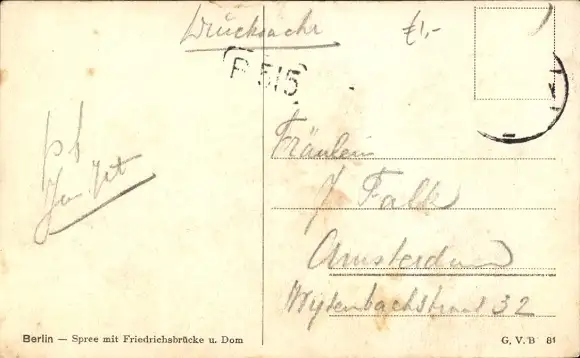 Drucksache
£1,-
P 515
Fräulein
J Falk
Amsterdam
Wytenbachstraat 32
Berlin — Spree mit Friedrichsbrücke u. Dom
G. V. B 81